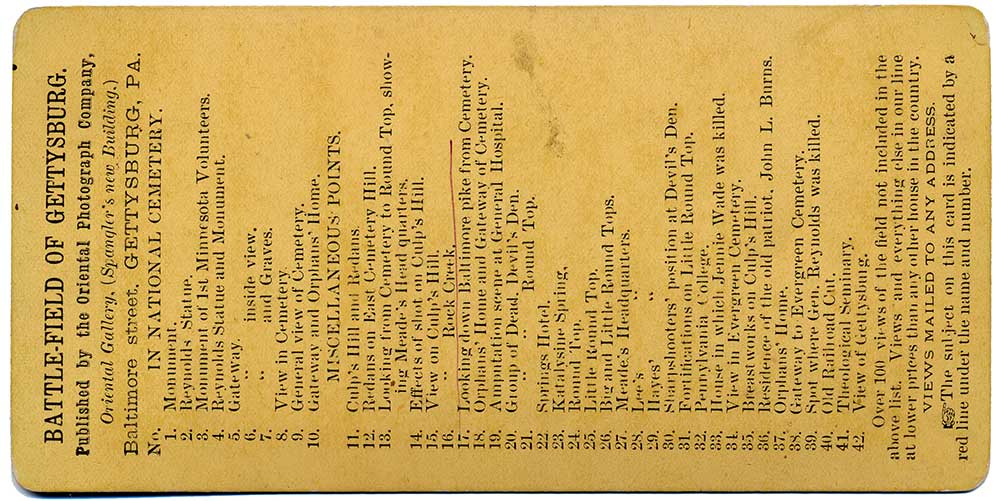 BATTLE-FIELD OF GETTYSBURG.
Published by the Oriental Photograph Company,
Oriental Gallery, (Spangler's new Building.)
Baltimore street, GETTYSBURG, PA.
No. IN NATIONAL CEMETERY.
1. Monument.
2. Reynolds Statue.
3. Monument of 1st Minnesota Volunteers.
4. Reynolds Statue and Monument.
5. Gateway.
6. " inside view.
7. " and Graves.
8. View in Cemetery.
9. General view of Cemetery.
10. Gateway and Orphans Home.
MISCELLANEOUS POINTS.
11. Culp's Hill and Redans.
12. Redans on East Cemetery Hill.
13. Looking from Cemetery to Round Top, show-
ing Meade's Head quarters.
14. Effects of shot on Culp's Hill.
15. View on Culp's Hill.
16. " Rock Creek.
17. Looking down Baltimore pike from Cemetery.
18. Orphans' Home and Gateway of Cemetery.
19. Amputation scene at General Hospital.
20. Group of Dead, Devil's Den.
21. " " Round Top.
22. Springs Hotel.
23. Katalysine Spring,
24. Round Top.
25. Little Round Top.
26. Big and Little Round Tops.
27. Meade's Headquarters.
28. Lee's "
29. Hayes' "
30. Sharpshooters' position at Devil's Den.
31. Fortifications on Little Round Top.
32. Pennsylvania College.
33. House in which Jennie Wade was killed.
34. View in Evergreen Cemetery.
35. Breastworks on Culp's Hill.
36. Residence of the old patriot, John L. Burns.
37. Orphans' Home.
38. Gateway to Evergreen Cemetery.
39. Spot where Gen. Reynolds was killed.
40. Old Railroad Cut.
41. Theological Seminary.
42. View of Gettysburg.
Over 100 views of the field not included in the
above list. Views and everything else in our line
at lower prices than any other house in the country.
VIEWS MAILED TO ANY ADDRESS.
☞The subject on this card is indicated by a
red line under the name and number.